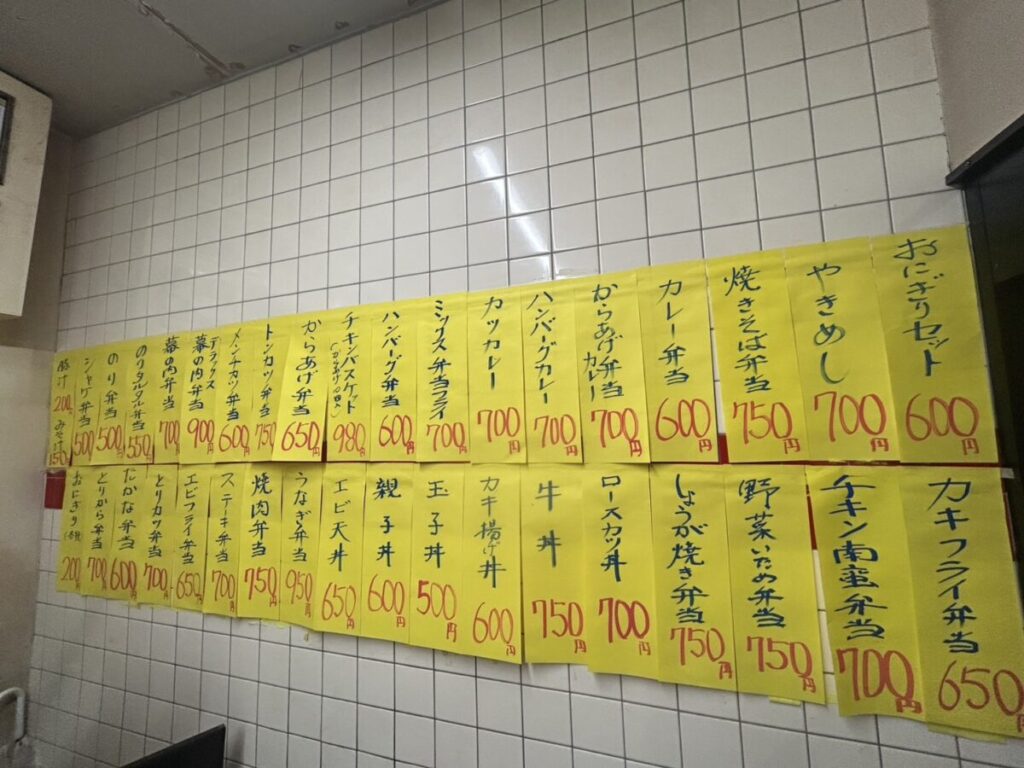 おにぎりセット 600円
やきめし 700円
焼きそば弁当 750円
カレー弁当 600円
からあげ弁当カレー 700円
ハンバーグカレー 700円
カツカレー 700円
ミックス弁当フライ 700円
ハンバーグ弁当 600円
チキンバスケット 980円
からあげ弁当 650円
トンカツ弁当 750
メンチカツ弁当 600
デラックス幕の内弁当 900
幕の内弁当 700
のりタルタル弁当 550
のり弁当 500
シャケ弁当 500
豚汁 200 みそ汁 150
カキフライ弁当 650円
チキン南蛮弁当 700円
野菜いため弁当 750円
しょうが焼き弁当 750円
ロースカツ丼 700円
牛丼 750円
カキ揚げ丼 600円
玉子丼 500円
親子丼 600円
エビ天丼 650円
うなぎ弁当 950円
焼肉弁当 750円
ステーキ弁当 700円
エビフライ弁当 650円
とりカツ弁当 700円
たかな弁当 600
とりから弁当 700
おにぎり 200